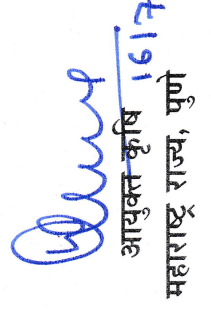 16/7
आयुक्त कृषि
महाराष्ट्र राज्य, पुणे